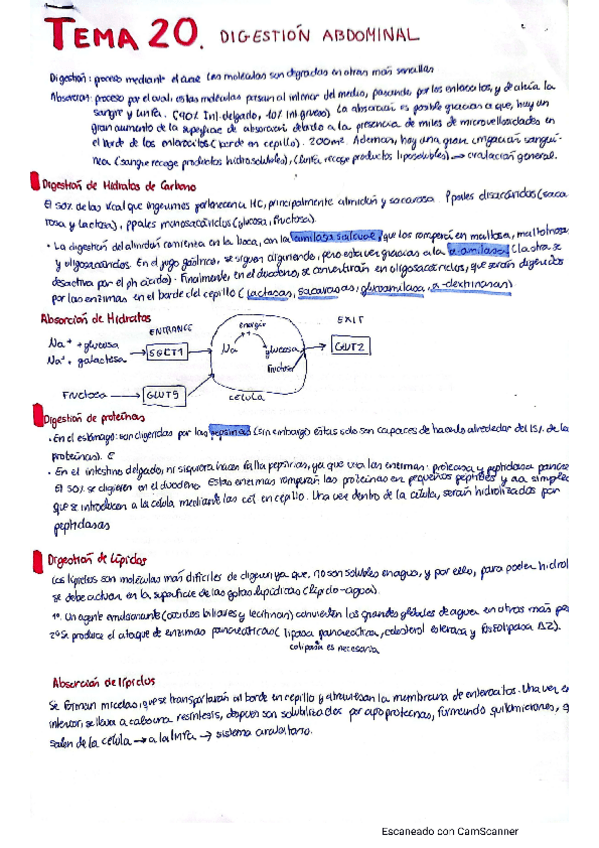 TEMA 20. DIGESTIÓN ABDOMINAL
Digestión: proceso mediante el cual las moléculas son degradadas en otras más sencillas
Absorción: proceso por el cual estas moléculas pasan al interior del medio, pasando por los enterocitos, y de ahí a la
sangre y linfa. (90% Int. delgado, 10% int grueso) La absorción es posible gracias a que, hay un
gran aumento de la superficie de absorción debido a la presencia de miles de microvellosidades en
el borde de los enterocitos (borde en cepillo). 200m². Además, hay una gran irrigación sanguí-
nea (sangre recoge productos hidrosolubles), (linfa recoge productos liposolubles) → circulación general.
Digestión de Hidratos de Carbono
El 50% de las kcal que ingerimos pertenecen a HC, principalmente almidón y sacarosa. Ppales disacáridos (saca
rosa y lactosa), ppales monosacáridos (glucosa, fructosa).
• La digestión del almidón comienza en la boca, con la amilasa salivar, que los romperá en maltosa, maltotriosa
y oligosacáridos. En el jugo gástrico, se siguen digiriendo, pero esta vez gracias a la α-amilasa (la otra se
desactiva por el ph ácido). Finalmente, en el duodeno, se convertirán en oligosacáridos, que serán digeridos
por las enzimas en el borde del cepillo (lactasas, sacarasas, glucoamilasa, α-dextrinasas)
Absorción de Hidratos
ENTRANCE
energía
EXIT
Na⁺ + glucosa
Na⁺ + galactosa
SGLT1
Na
glucosa
Fructosa
GLUT2
Fructosa
GLUT5
célula
Digestión de proteínas
• En el estómago: son digeridas por las pepsinas (sin embargo estas solo son capaces de hacerlo alrededor del 15% de la
proteínas).
• En el intestino delgado, ni siquiera hacen falta pepsinas, ya que usa las enzimas: proteasa y peptidasa pancre
El 50% se digieren en el duodeno. Estas enzimas romperán las proteínas en pequeños péptidos y aa simples
que se introducen a la célula mediante las cél en cepillo. Una vez dentro de la célula, serán hidrolizados por
peptidasas
Digestión de Lípidos
Los lípidos son moléculas más difíciles de digerir ya que no son solubles en agua, y por ello, para poder hidrol
se debe actuar en la superficie de las gotas lipídicas (lípido-agua).
1º. Un agente emulsionante (ácidos biliares y lecitinan) convierten los grandes glóbulos de agua en otros más pe
2º Se produce el ataque de enzimas pancreáticas (lipasa pancreática, colesterol esterasa y fosfolipasa A2).
colipasa es necesaria
Absorción de lípidos
Se forman micelas, que se transportarán al borde en cepillo y atraviesan la membrana de enterocitos. Una vez en
interior, se lleva a cabo una resíntesis, después son solubilizados por apoproteínas, formando quilomicrones, q
salen de la célula → a la linfa → sistema circulatorio.
Escaneado con CamScanner